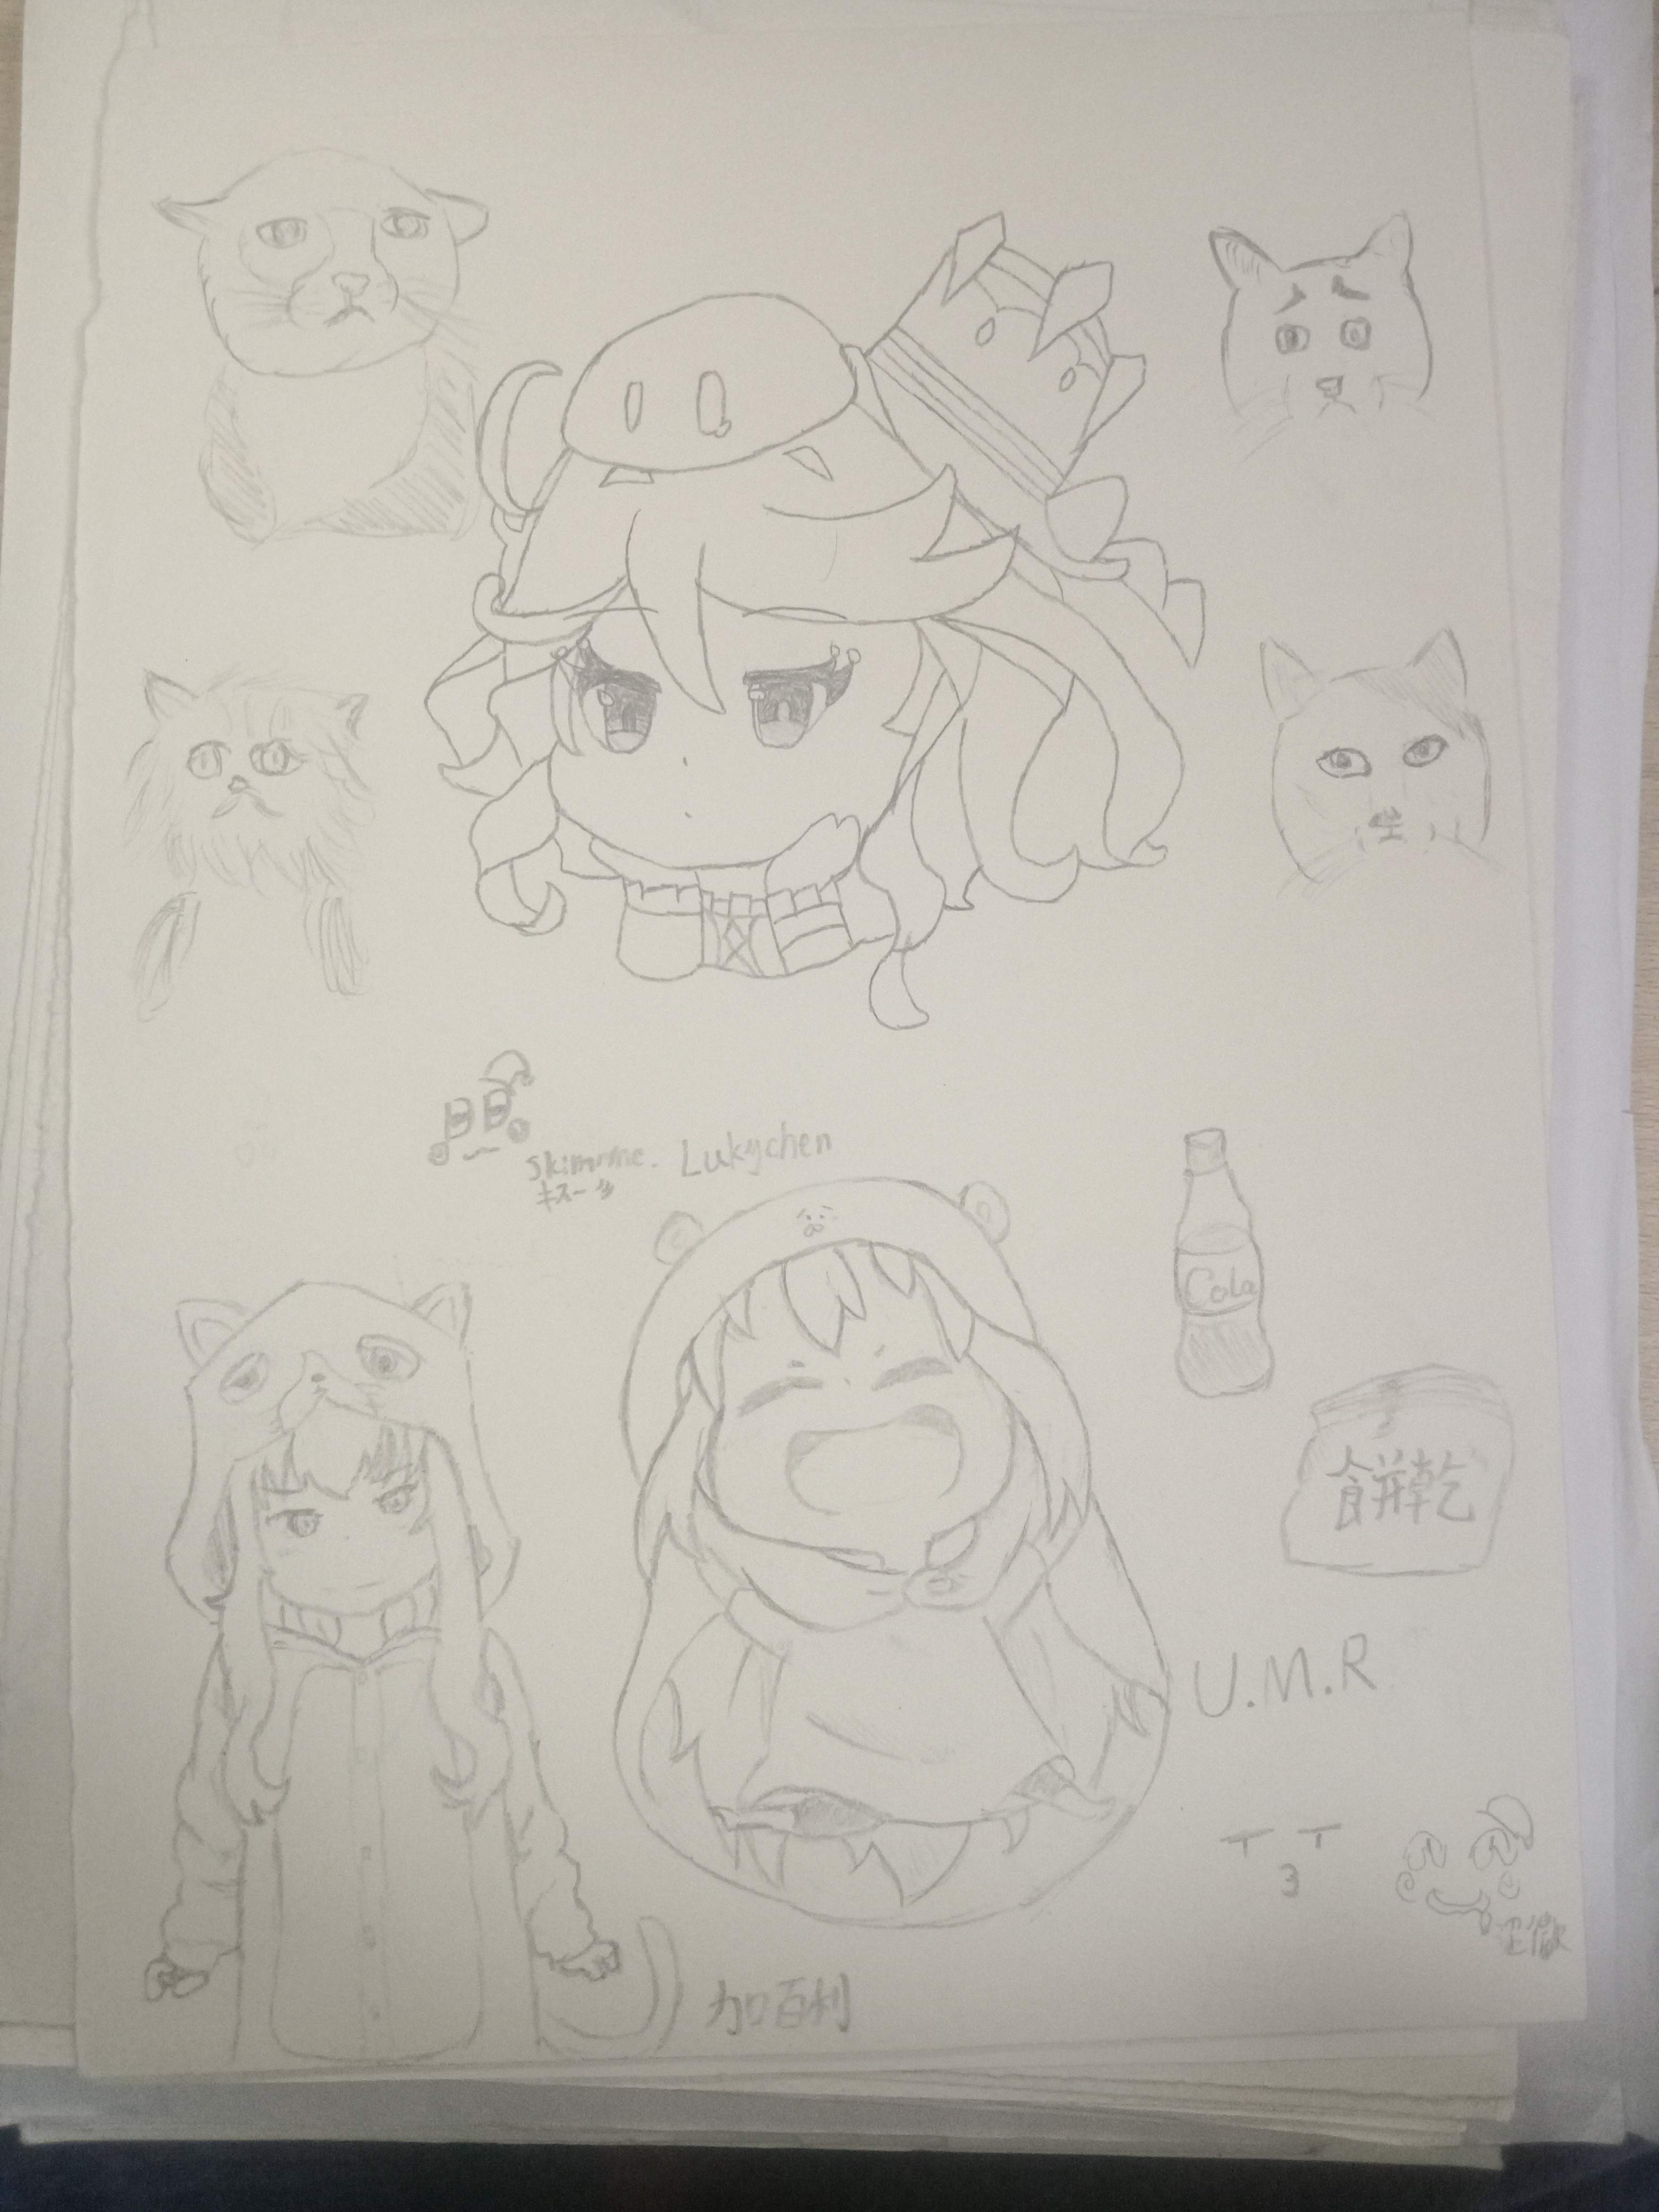 Skimme. Lukychen
キスーッ
Cola
餅乾
U.M.R
加百利